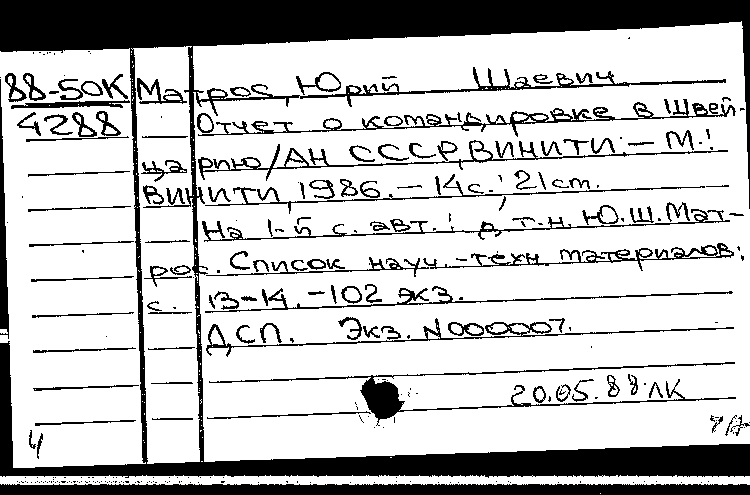 88-50К Матрос, Юрий Шаевич
4288 Отчет о командировке в Швей-
царию/АН СССР, ВИНИТИ. - М.:
ВИНИТИ, 1986. - 14с.; 21см.
На 1-й с. авт.: д.т.н. Ю.Ш. Мат-
рос. Список науч.-техн. материалов:
с. 13-14. - 102 экз.
ДСП. Экз. N000007.
20.05.88 ЛК
4